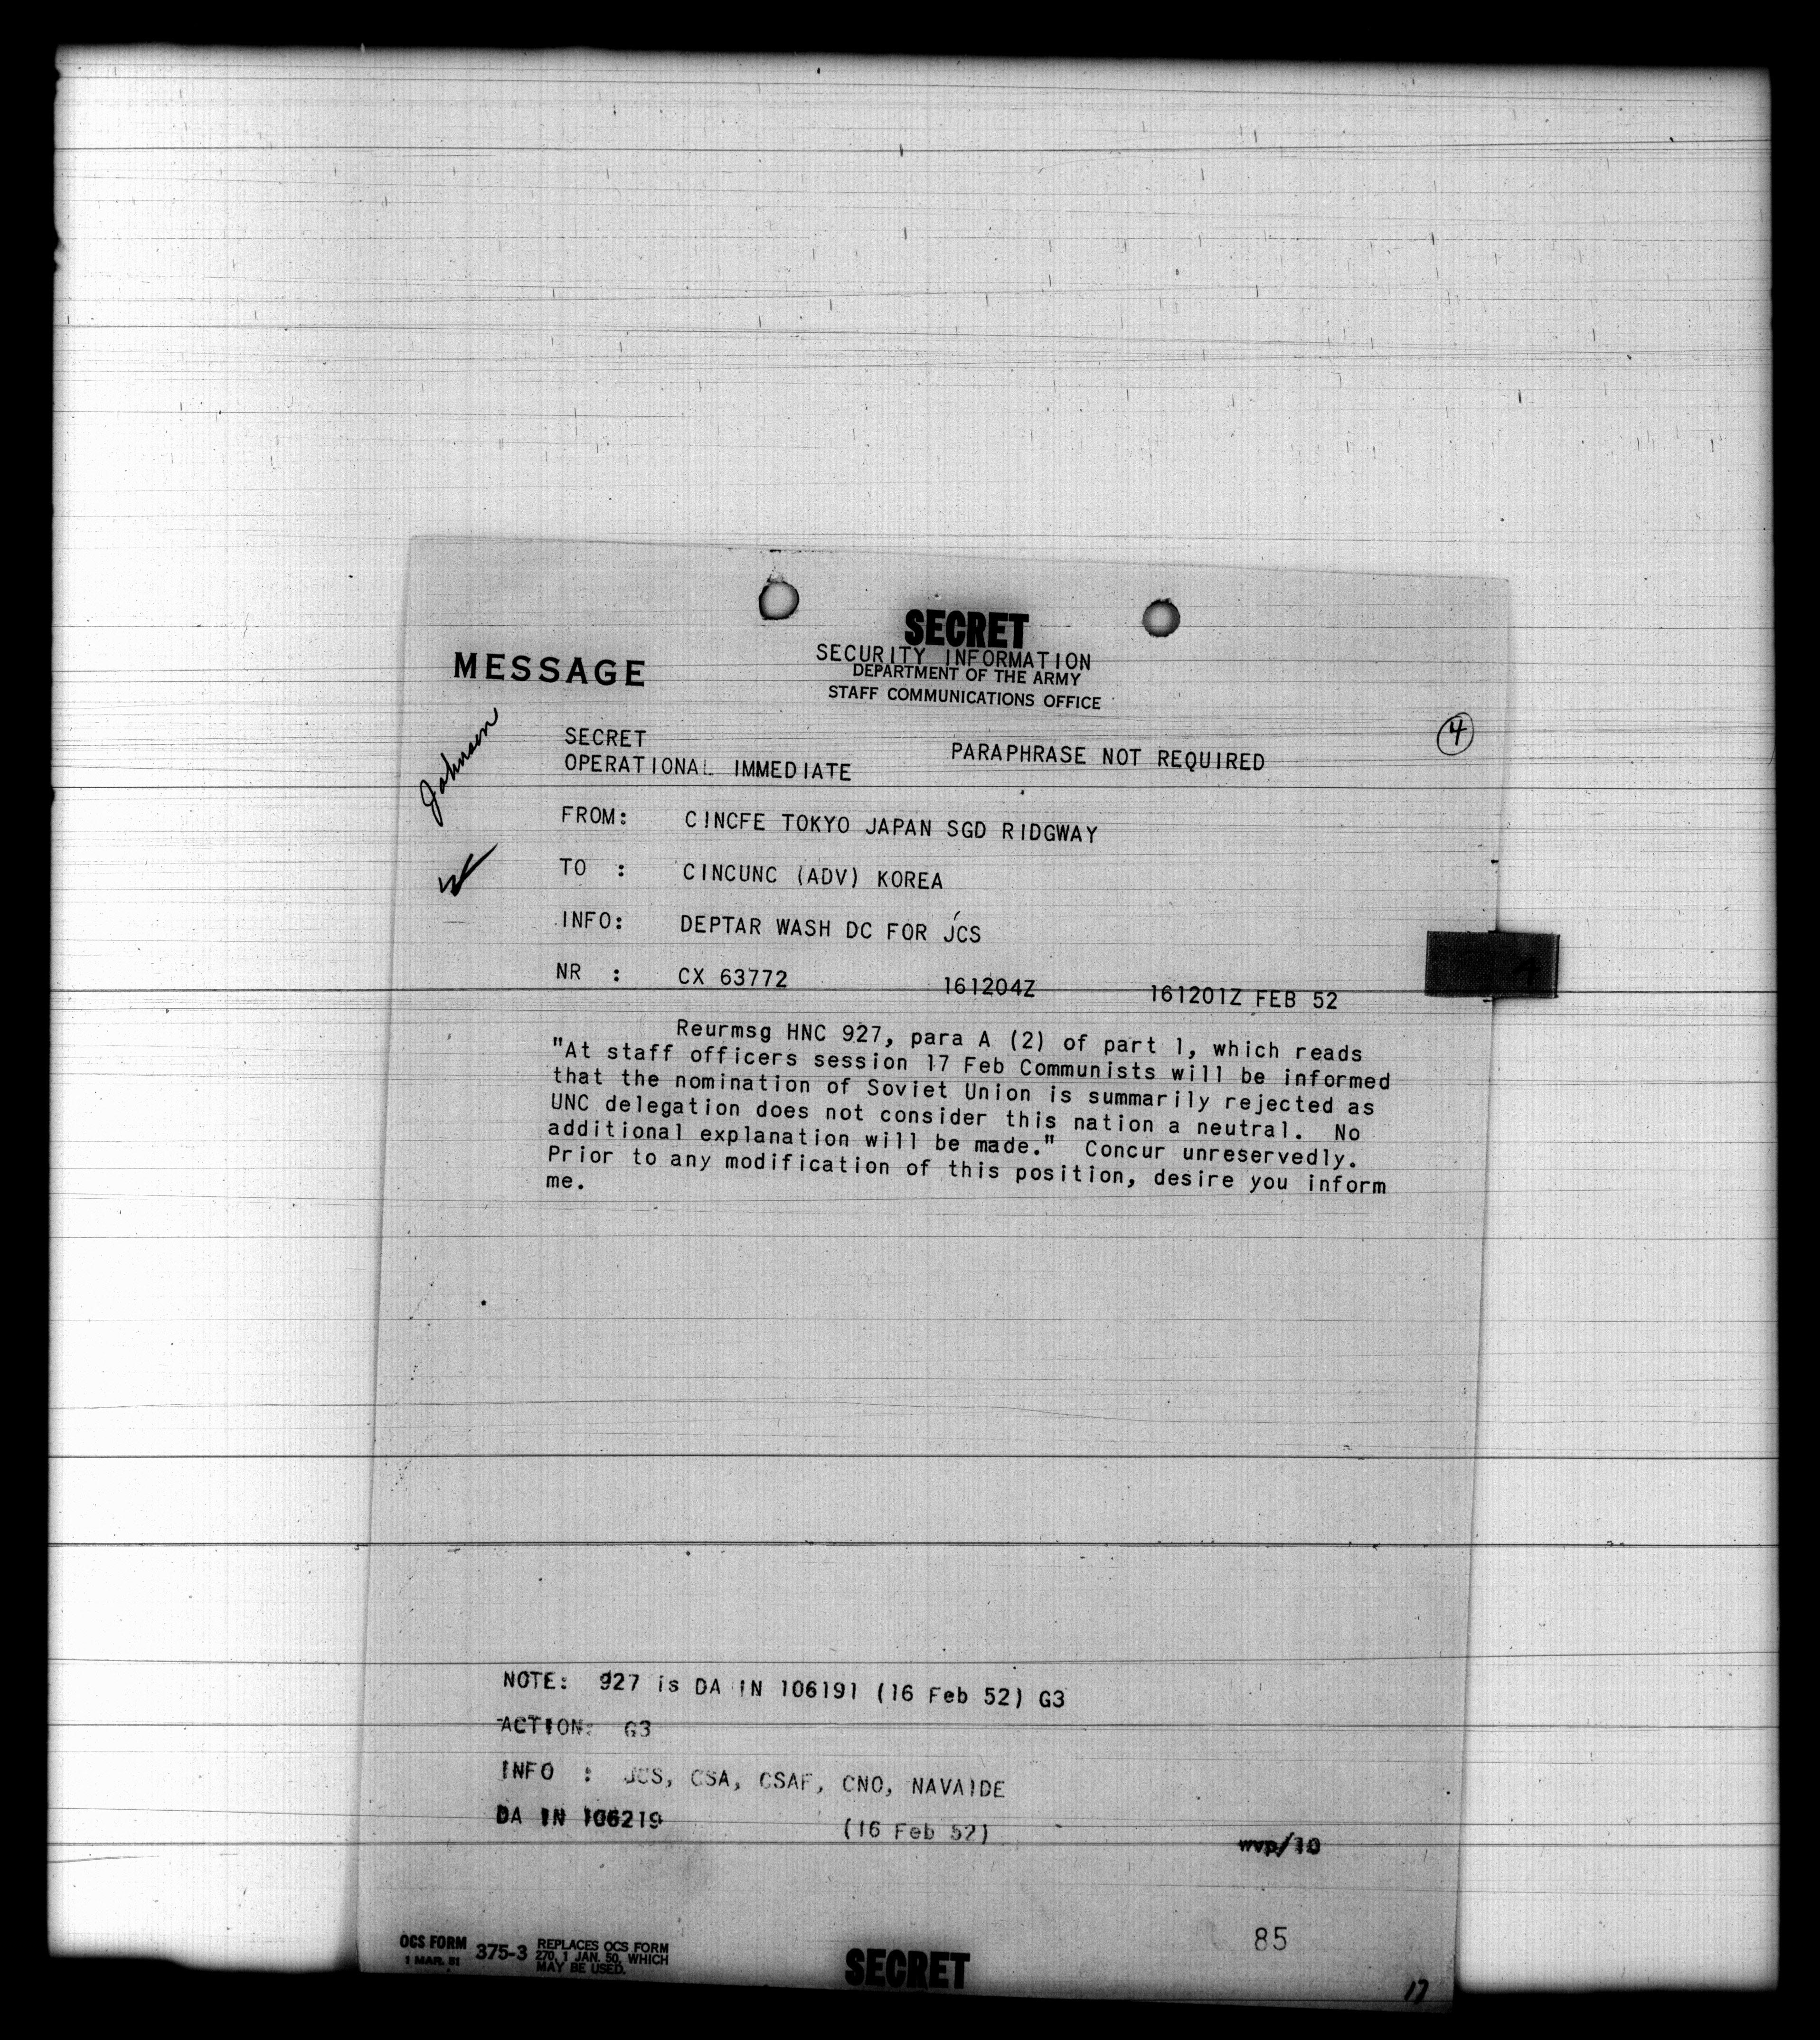 SECRET
SECURITY INFORMATION
MESSAGE
DEPARTMENT OF THE ARMY
STAFF COMMUNICATIONS OFFICE
Johnson
4
SECRET
OPERATIONAL IMMEDIATE PARAPHRASE NOT REQUIRED
FROM: CINCFE TOKYO JAPAN SGD RIDGWAY
TO : CINCUNC (ADV) KOREA
INFO: DEPTAR WASH DC FOR JCS
NR : CX 63772 161204Z 161201Z FEB 52
Reurmsg HNC 927, para A (2) of part 1, which reads
"At staff officers session 17 Feb Communists will be informed
that the nomination of Soviet Union is summarily rejected as
UNC delegation does not consider this nation a neutral. No
additional explanation will be made." Concur unreservedly.
Prior to any modification of this position, desire you inform
me.
NOTE: 927 is DA IN 106191 (16 Feb 52) G3
ACTION: G3
INFO : JCS, CSA, CSAF, CNO, NAVAIDE
DA IN 106219 (16 Feb 52) wvp/10
85
OCS FORM 375-3 REPLACES OCS FORM
1 MAR. 51 270, 1 JAN. 50, WHICH
MAY BE USED.
SECRET
17